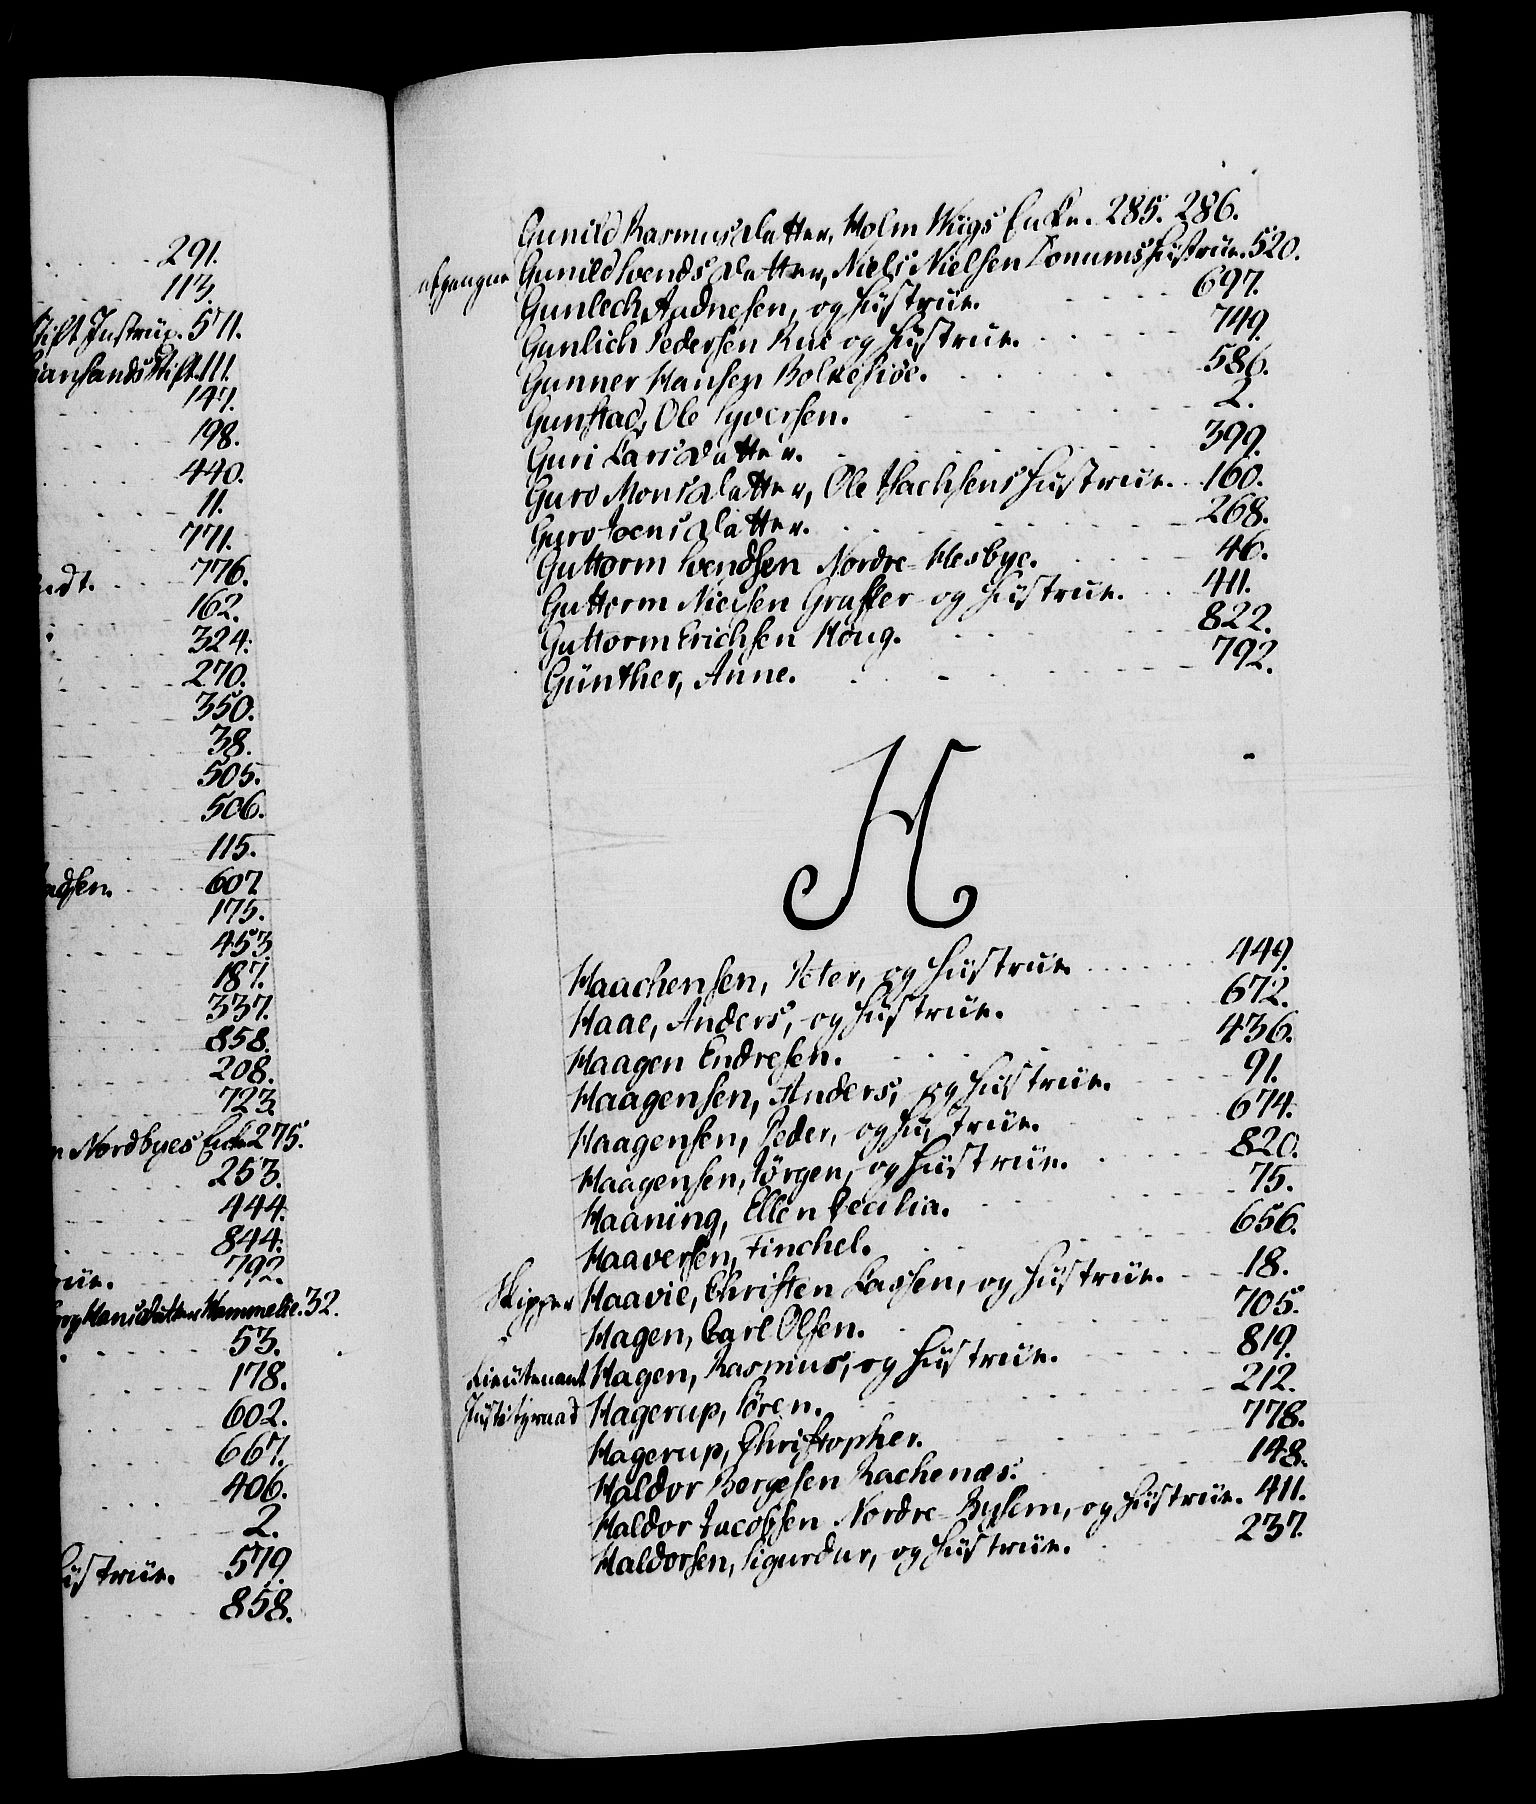 291.
113.
Stift Justrüx. 571.
iansands Stift 111.
147.
198.
440.
11.
771.
ndt. 776.
162.
324.
270.
350.
38.
505.
506.
115.
adsen. 607
175.
453
187.
337.
858.
208.
723.
n Nordbyes Enke 275.
253.
444.
844.
792.
rüe.
Hansdatter Hammelie. 32.
53.
178.
602.
667.
406.
2.
üstrüe. 579.
858.
Gunild Rasmusdatter, Holm Wiigs Enke. 285. 286.
afgangne Gunild Svendsdatter, Niels Nielsen Tonnums Hüstrüe. 520.
Gunlech Andnesen, og Hüstrüe. 697.
Gunlich Pedersen Rue og Hüstrüe. 749.
Gunner Hansen Bolkesiøe. 586.
Gunstad, Ole Syversen. 2.
Guri Larsdatter. 399.
Guro Monsdatter, Ole Isachsens Hüstrüe. 160.
Guro Joensdatter. 268.
Guttorm Svendsen Nordre-Hesbye. 46.
Guttorm Nielsen Graffer og Hüstrüe. 411.
Guttorm Erichsen Houg. 822.
Günther, Anne. 792.
H
Haachensen, Peter, og Hüstrüe 449.
Haae, Anders, og Hüstrüe. 672.
Haagen Endresen. 436.
Haagensen, Anders, og Hüstrüe. 91.
Haagensen, Peder, og Hüstrüe. 674.
Haagensen, Jørgen, og Hüstrüe. 820.
Haaning, Ellen Cecilia. 75.
Haaversen, Finchel. 656.
Skipper Haavie, Christen Lassen, og Hüstrüe. 18.
Hagen, Carl Olsen. 705.
Lieutenant Hagen, Rasmus, og Hüstrüe. 819.
Justitzraad Hagerup, Søren. 212.
Hagerup, Christopher. 778.
Haldor Børgesen Rachenæs. 148.
Haldor Jacobsen Nordre-Bysem, og Hüstrüe. 411.
Haldorsen, Sigurdur, og Hüstrüe. 237.